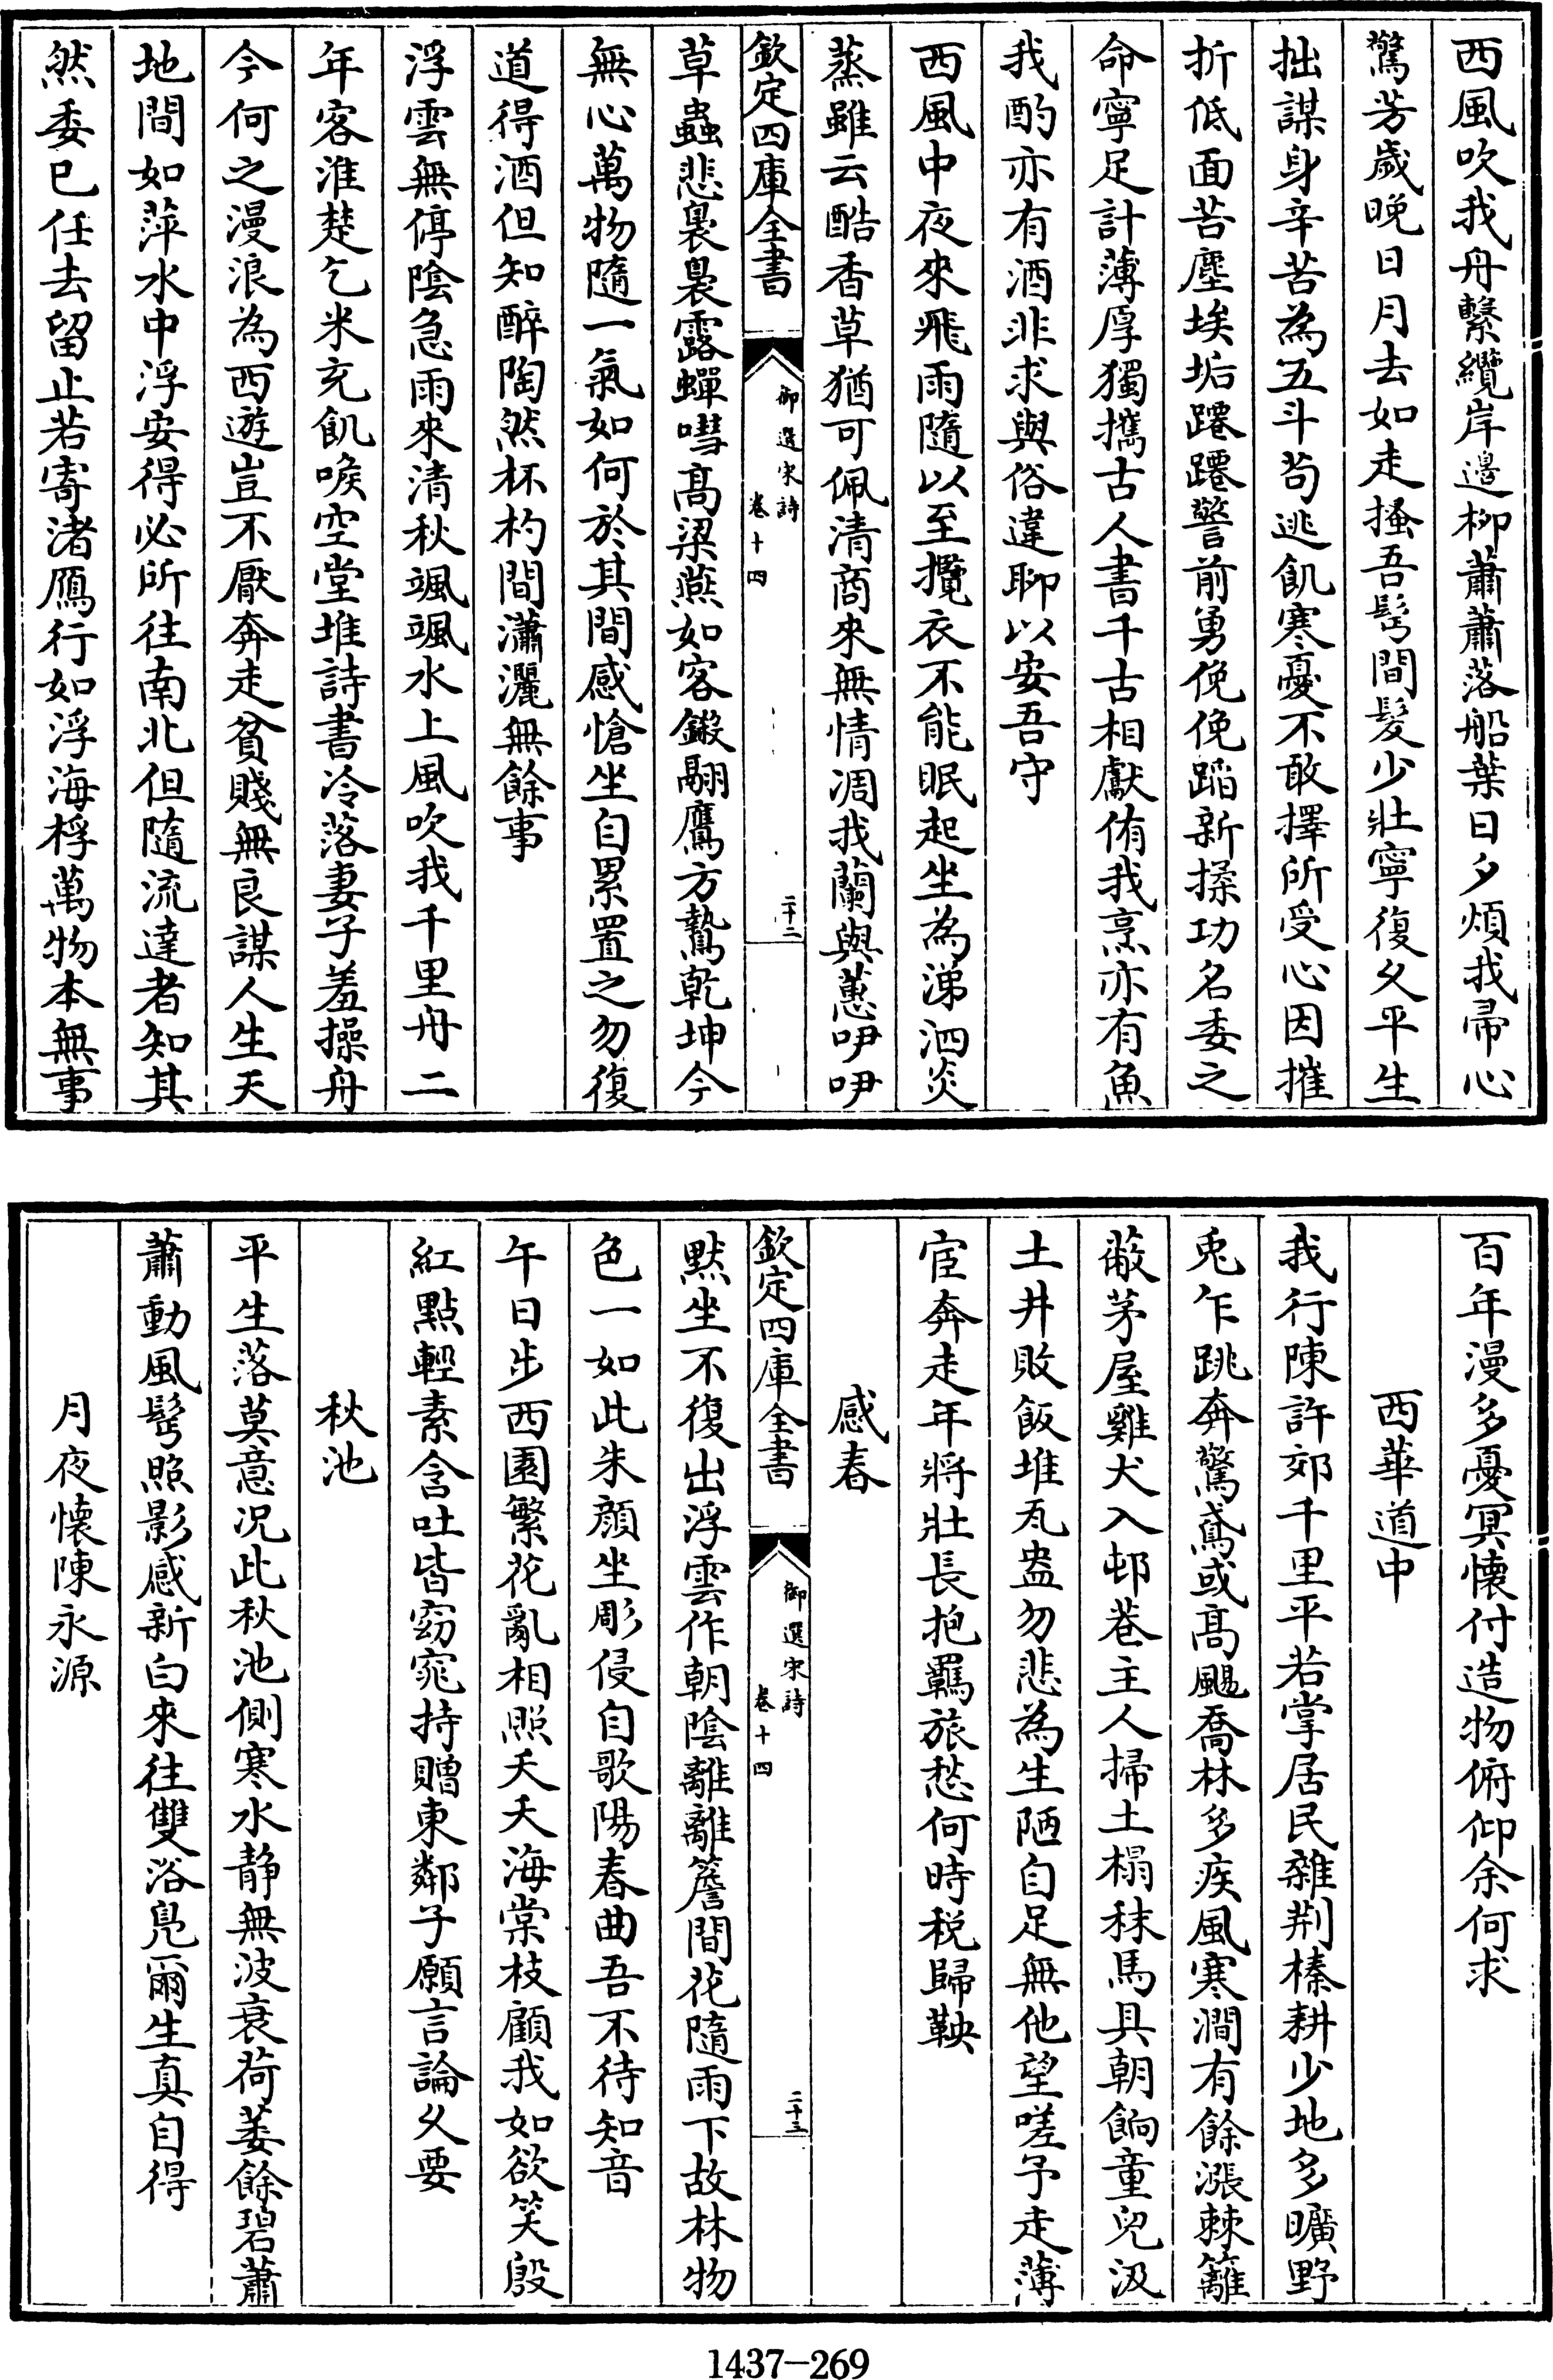 西風吹我舟繫纜岸邊柳蕭蕭落船葉日夕煩我帚心
驚芳歲晚日月去如走搔吾髩間髮少壯寧復久平生
拙謀身辛苦為五斗苟逃飢寒憂不敢擇所受心因摧
折低面苦塵埃垢蹮蹮警前勇俛俛蹈新揉功名委之
命寧足計薄厚獨攜古人書千古相獻侑我烹亦有魚
我酌亦有酒非求與俗違聊以安吾守
西風中夜來飛雨隨以至攬衣不能眠起坐為涕泗炎
蒸雖云酷香草猶可佩清商來無情凋我蘭與蕙咿咿
欽定四庫全書
御選宋詩
卷十四
二十二
草蟲悲裊裊露蟬嘒高梁燕如客鎩翮鷹方鷙乾坤今
無心萬物隨一氣如何於其間感愴坐自累置之勿復
道得酒但知醉陶然杯杓間瀟灑無餘事
浮雲無停陰急雨來清秋颯颯水上風吹我千里舟二
年客淮楚乞米充飢喉空堂堆詩書冷落妻子羞操舟
今何之漫浪為西遊豈不厭奔走貧賤無良謀人生天
地間如萍水中浮安得必所往南北但隨流達者知其
然委已任去留止若寄渚鴈行如浮海桴萬物本無事
百年漫多憂冥懷付造物俯仰余何求
西華道中
我行陳許郊千里平若掌居民雜荆榛耕少地多曠野
兎乍跳奔驚鳶或高颺喬林多疾風寒澗有餘漲棘籬
蔽茅屋雞犬入邨巷主人掃土榻秣馬具朝餉童兒汲
土井敗飯堆瓦盎勿悲為生陋自足無他望嗟予走薄
宦奔走年將壯長抱羈旅愁何時税歸鞅
感春
欽定四庫全書
御選宋詩
卷十四
二十三
默坐不復出浮雲作朝陰離離簷間花隨雨下故林物
色一如此朱顔坐彫侵自歌陽春曲吾不待知音
午日步西園繁花亂相照夭夭海棠枝顧我如欲笑殷
紅點輕素含吐皆窈窕持贈東鄰子願言論久要
秋池
平生落莫意况此秋池側寒水静無波衰荷萎餘碧蕭
蕭動風髩照影感新白來往雙浴鳧爾生真自得
月夜懷陳永源
1437-269